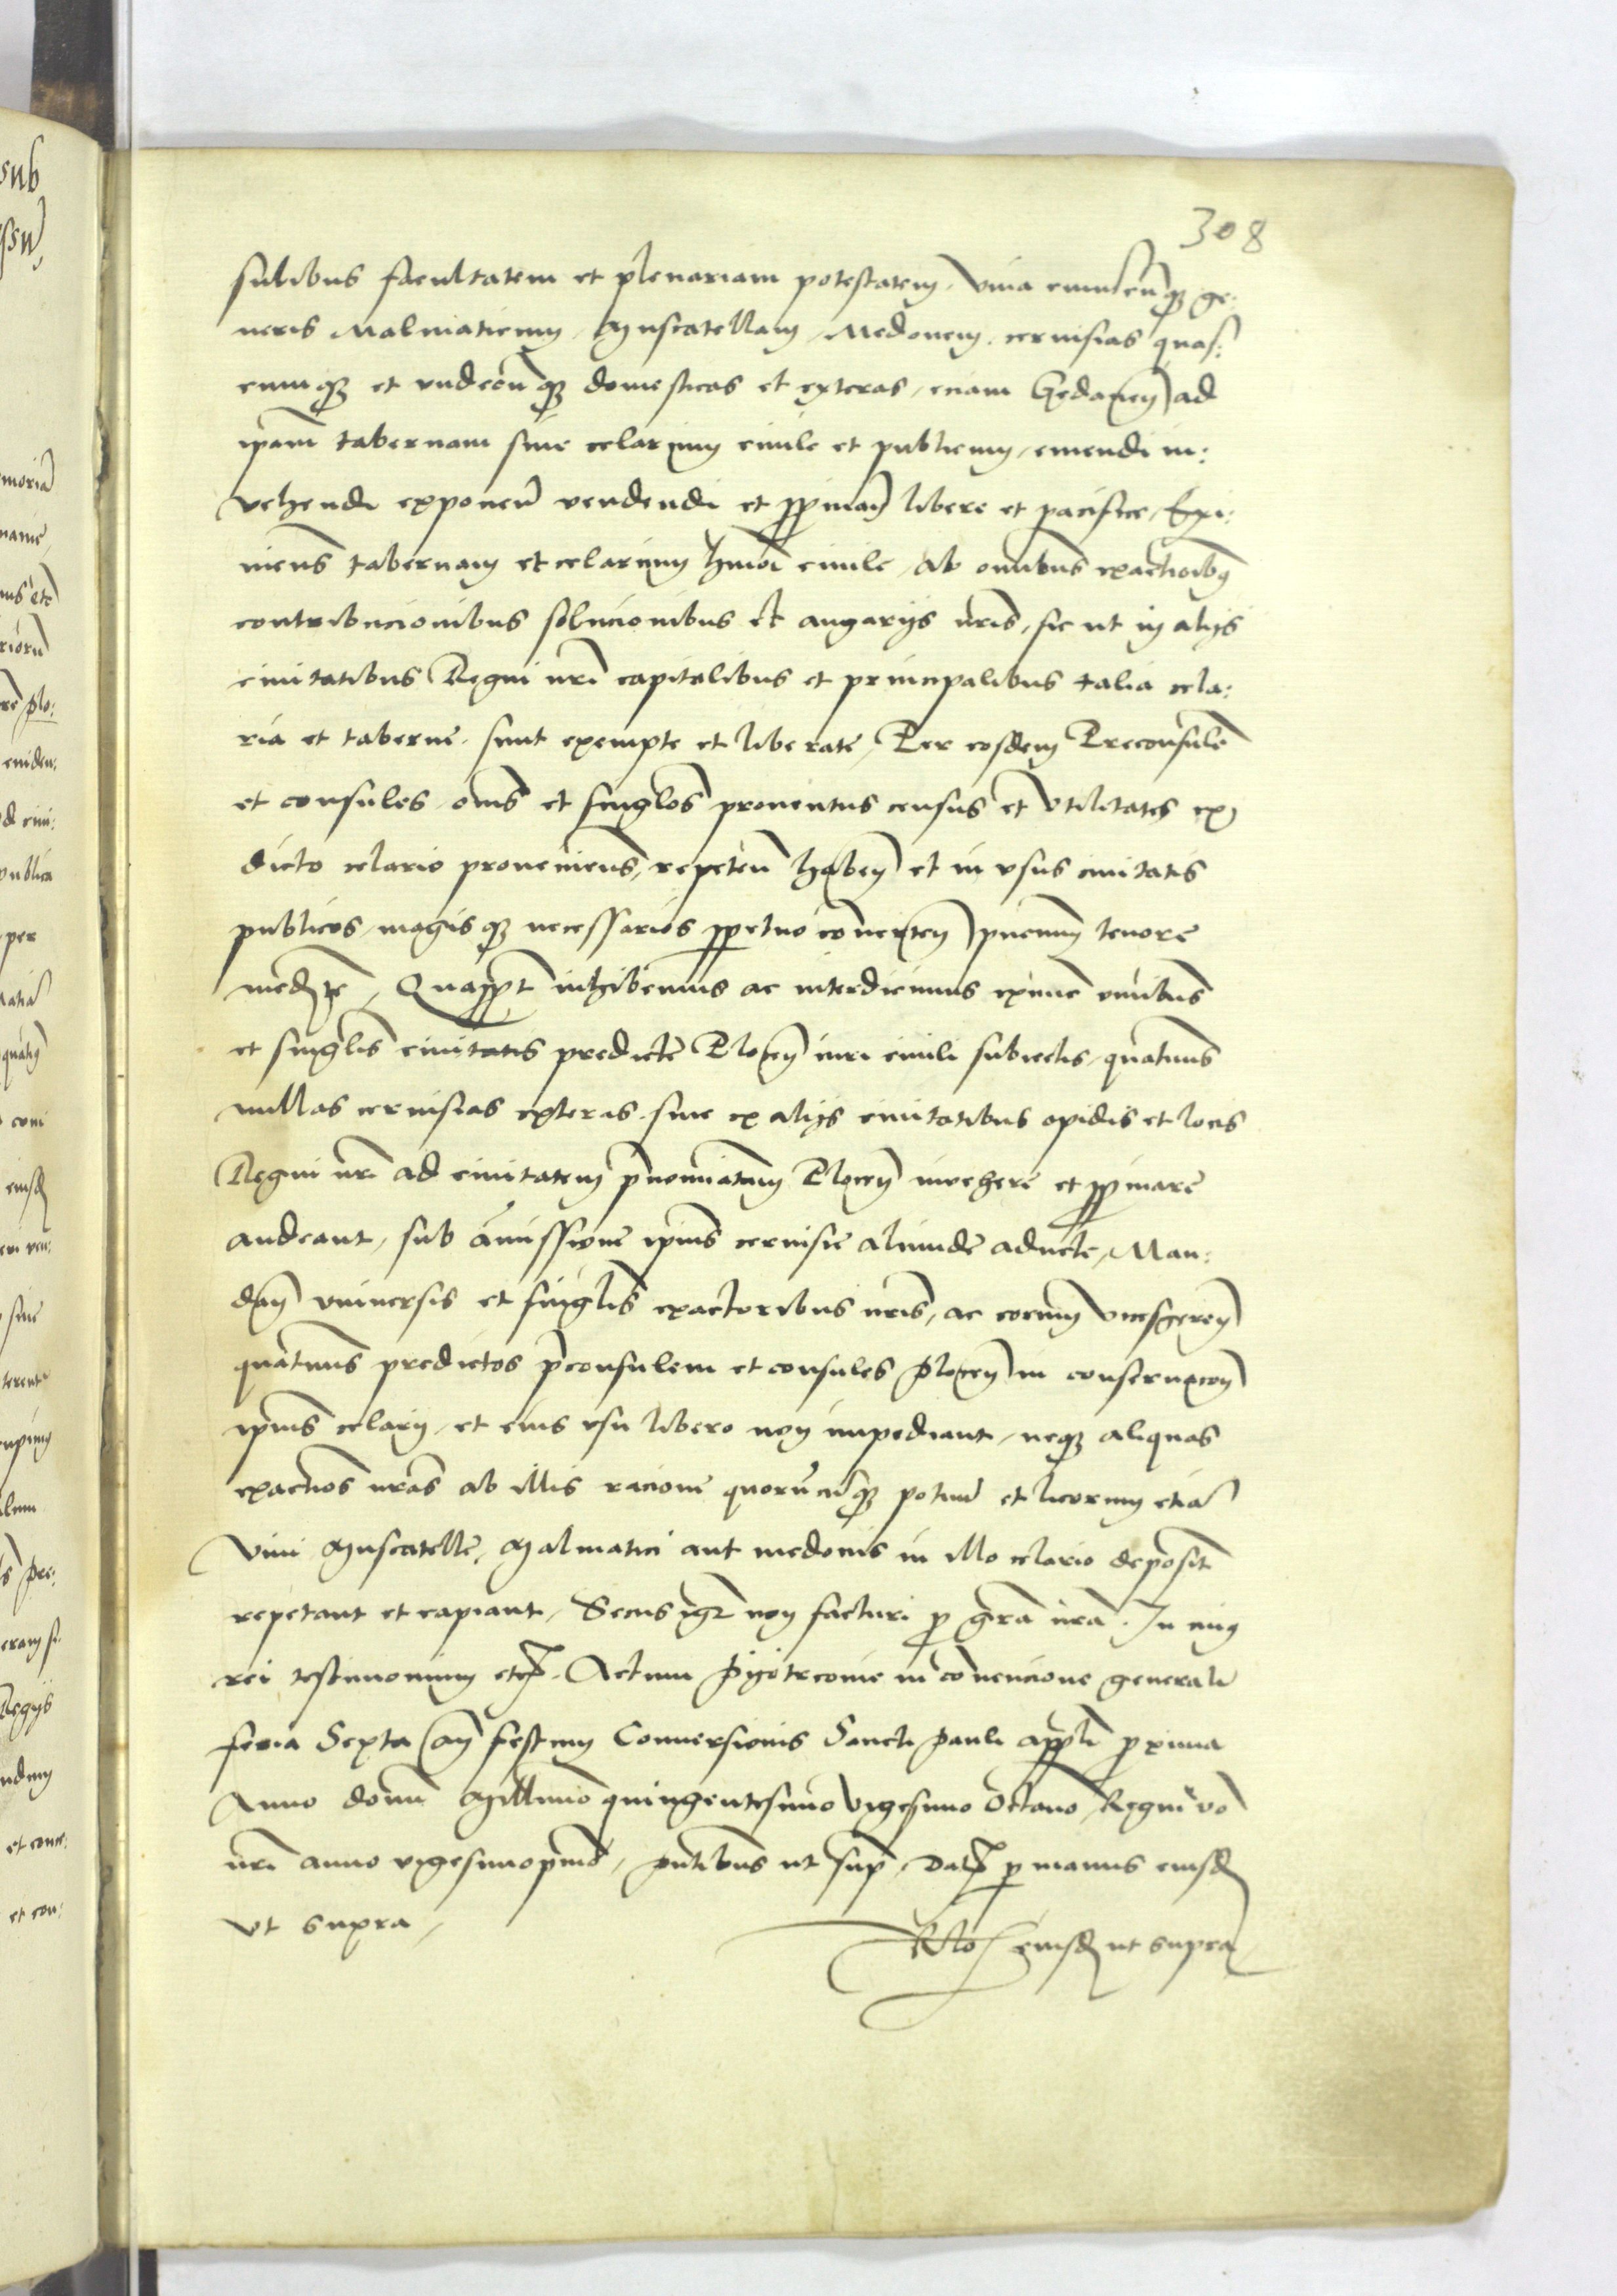 308
sulibus facultatem et plenariam potestatem, vina cuiuscunq3 ge:
neris Malmaticum, Muscatellam, Medonem, cervisias quas:
cumq3 et undecunq3 domesticas et exteras, eciam Gedanen ad
ipam tabernam sive celarium civile et publicum, emendi in:
vehendi exponen vendendi et ppinan libere et pacifice, Exi:
miens tabernam et celarium hmoi civile, ab omnibus exactioibus
contribucionibus solucionibus et angarijs nris, sic ut in alijs
civitatibus Regni nri capitalibus et principalibus talia cela:
ria et taberne sunt exempte et liberate, Per eosdem Preconsule
et consules, omes et singlos proventus census et utilitates ex
dicto celario proveniens, repeten haben et in usus civitatis
publicos, magisq3 necessarios ppetuo converten pncium tenore
med te, Quappt inhibemus ac interdicimus exnunc omnibus
et singlis civitatis predicte Plocen iuri civili subiectis, quatinus
nullas cervisias exteras, sive ex alijs civitatibus opidis et locis
Regni nri ad civitatem pnominatam Plocen invehere et ppinare
audeant, sub amissione ipius cervisie aliunde aducte, Man:
dan universis et singlis exactoribus nris, ac eorum vicesgeren
quatinus predictos pconsulem et consules Plocen in conservacon
ipius celarij, et eius usu libero non impediant, neq3 aliquas
exactios nras ab illis racione quorucunq3 potuu et licorum etia
Vini Muscatelle, Malmatici aut medonis in illo celario deposit
repetant et capiant, Secus igr non facturi p gra nra. In cuius
rei testimonium etc. Actum Pijotrcovie in convencione generali
feria Sexta an festum Conversionis Sancti Pauli appli proxima
Anno domi Millimo quingentesimo vigesimo Octavo, Regni vo
nri anno vigesimopmo, pntibus ut sup, Dat p manus eiusd
ut supra,
Rlo eiusd ut supra